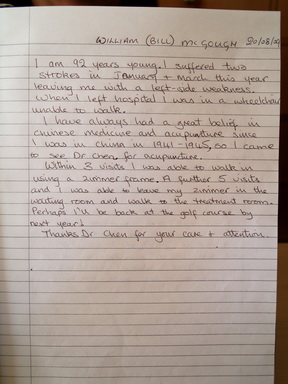 WILLIAM (BILL) MCGOUGH 20/08/0
I am 92 years young. I suffered two
strokes in January + March this year
leaving me with a left-side weakness.
When I left hospital I was in a wheelchair
unable to walk.
I have always had a great belief in
chinese medicine and acupuncture since
I was in china in 1941-1945, so I came
to see Dr Chen for acupuncture.
Within 3 visits I was able to walk in
using a zimmer frame. A further 5 visits
and I was able to leave my zimmer in the
waiting room and walk to the treatment room.
Perhaps I'll be back at the golf course by
next year!
Thanks Dr Chen for your care + attention.